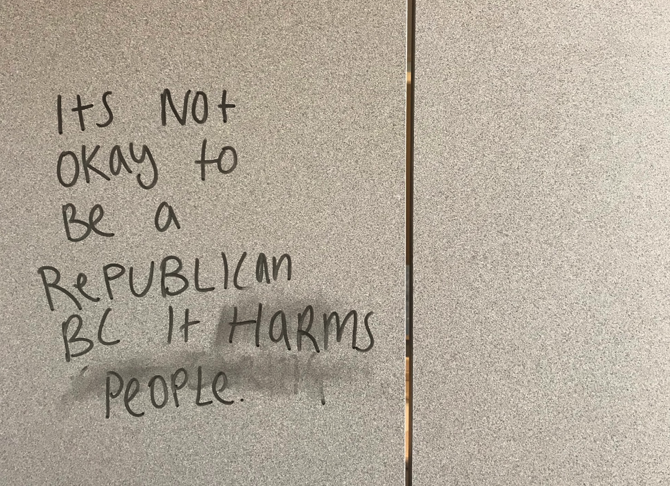 Its Not
Okay to
Be a
RePUBLICan
BC It HaRMS
PeOPLe.